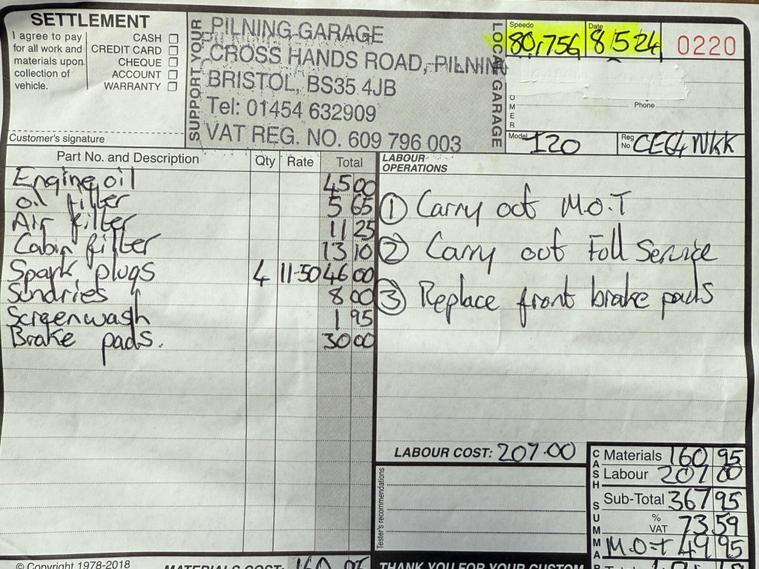 SETTLEMENT
I agree to pay for all work and materials upon collection of vehicle.
CASH
CREDIT CARD
CHEQUE
ACCOUNT
WARRANTY
Customer's signature
SUPPORT YOUR
PILNING GARAGE
CROSS HANDS ROAD, PILNING
BRISTOL, BS35 4JB
Tel: 01454 632909
VAT REG. NO. 609 796 003
LOCAL GARAGE
Speedo 80,756
Date 8/5/24
0220
OMER
Phone
Model I20
Reg No CE64 NKK
Part No. and Description Qty Rate Total
Engine oil 45 00
Oil filter 5 65
Air filter 11 25
Cabin filter 13 10
Spark plugs 4 11-50 46 00
Sundries 8 00
Screenwash 1 95
Brake pads. 30 00
LABOUR OPERATIONS
① Carry out M.O.T
② Carry out Full Service
③ Replace front brake pads
LABOUR COST: 207.00
Tester's recommendations
CASH SUMMA
Materials 160 95
Labour 207 00
Sub-Total 367 95
% VAT 73 59
M.O.T 49 95
© Copyright 1978-2018
MATERIALS COST:
THANK YOU FOR YOUR CUSTOM